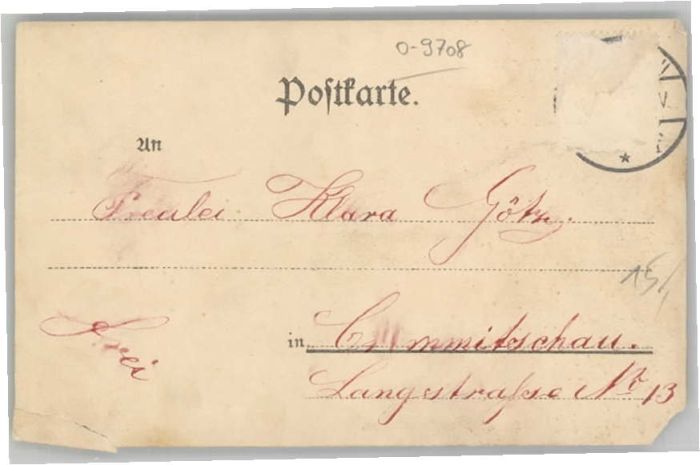 0-9708
Poſtkarte.
An
Frealei Klara Götz.
15,
in Crimmitschau.
Frei
Langestraſse Nr 13